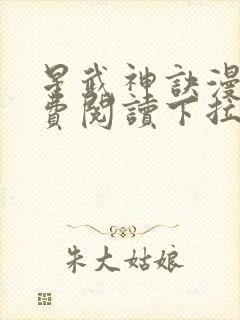 星武神訣漫
費閱讀下拉
朱大姑娘